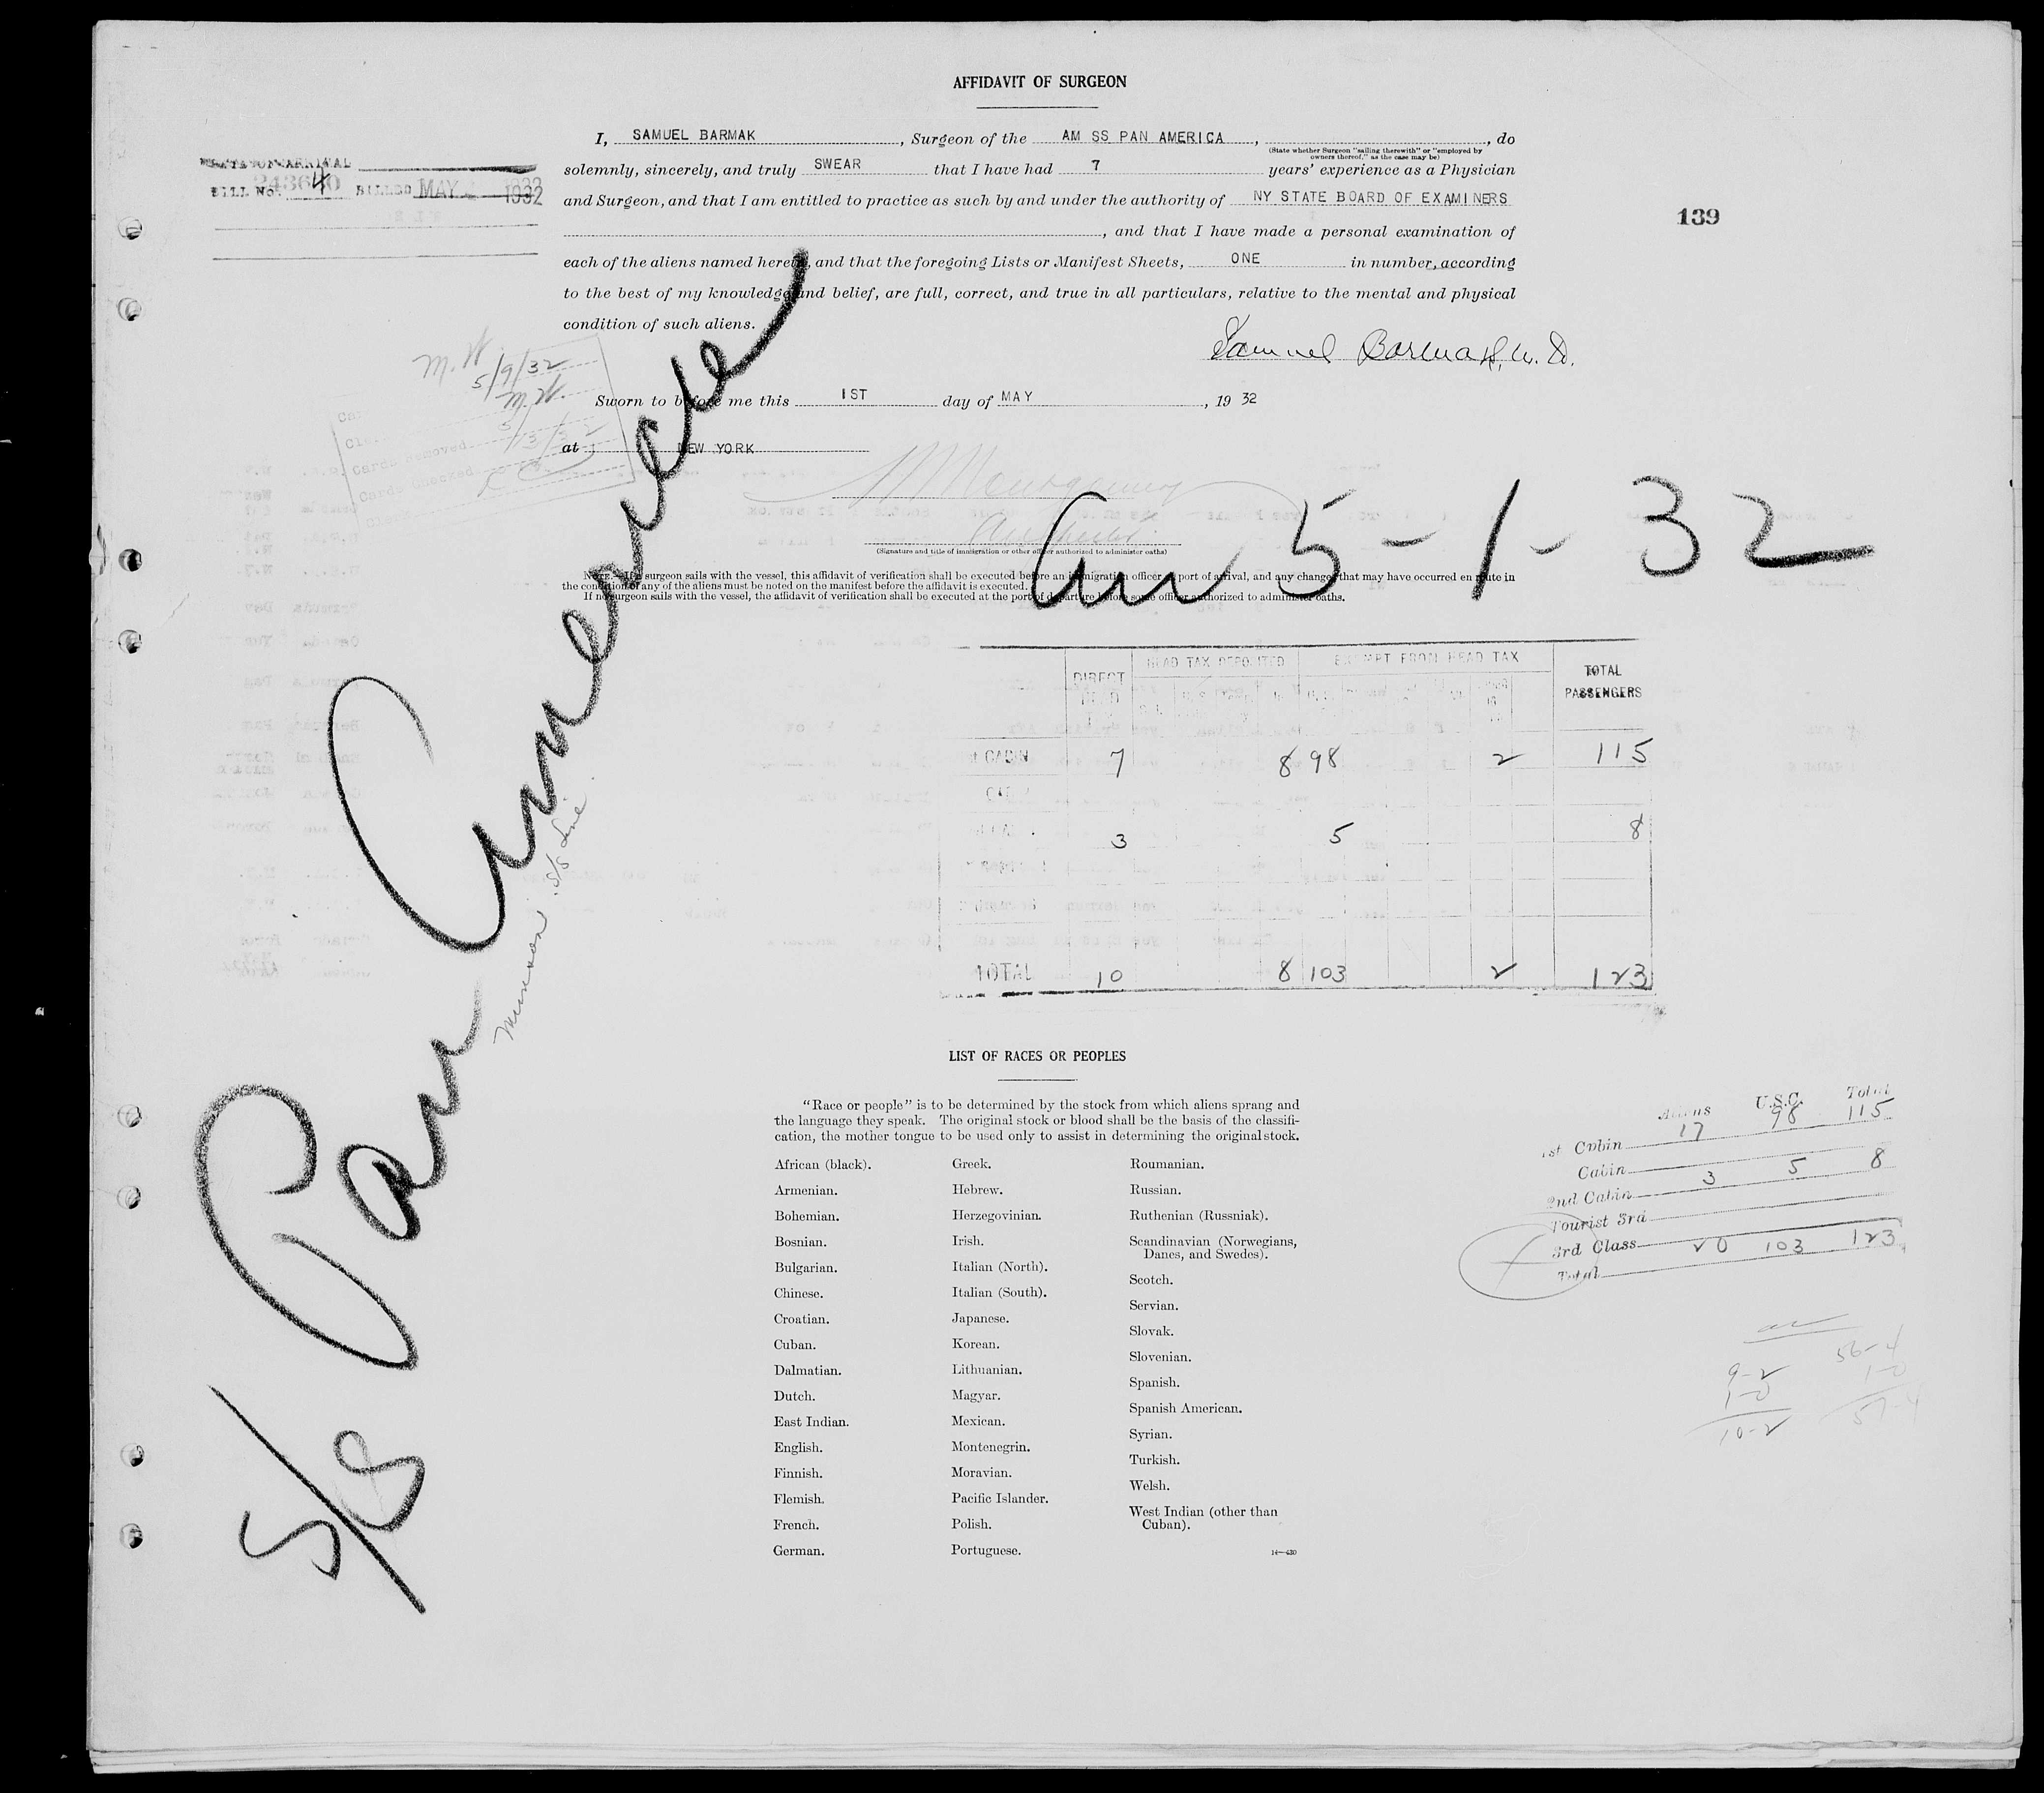 AFFIDAVIT OF SURGEON
I, SAMUEL BARMAK, Surgeon of the AM SS PAN AMERICA, , do
(State whether Surgeon "sailing therewith" or "employed by
owners thereof," as the case may be)
solemnly, sincerely, and truly SWEAR that I have had 7 years' experience as a Physician
and Surgeon, and that I am entitled to practice as such by and under the authority of NY STATE BOARD OF EXAMINERS
, and that I have made a personal examination of
each of the aliens named herein, and that the foregoing Lists or Manifest Sheets, ONE in number, according
to the best of my knowledge and belief, are full, correct, and true in all particulars, relative to the mental and physical
condition of such aliens.
BILL No. 4 BILLED MAY 1932
139
Samuel Barmak, M.D.
M.H.
5/9/32
M.H.
Sworn to before me this 1ST day of MAY, 19 32
at NEW YORK
Cards removed 5/13/32
Cards checked
Clerk
Montgomery
(Signature and title of immigration or other officer authorized to administer oaths)
Arr 5-1-32
NOTE.—If a surgeon sails with the vessel, this affidavit of verification shall be executed before an immigration officer at port of arrival, and any changes that may have occurred en route in
the condition of any of the aliens must be noted on the manifest before the affidavit is executed.
If no surgeon sails with the vessel, the affidavit of verification shall be executed at the port of departure before some officer authorized to administer oaths.
S/S Pan America
Munson S/S Line
DIRECT HEAD TAX DEPOSITED EXEMPT FROM HEAD TAX TOTAL PASSENGERS
CABIN 7 8 98 2 115
3 5 8
TOTAL 10 8 103 2 123
LIST OF RACES OR PEOPLES
"Race or people" is to be determined by the stock from which aliens sprang and
the language they speak. The original stock or blood shall be the basis of the classifi-
cation, the mother tongue to be used only to assist in determining the original stock.
African (black).
Armenian.
Bohemian.
Bosnian.
Bulgarian.
Chinese.
Croatian.
Cuban.
Dalmatian.
Dutch.
East Indian.
English.
Finnish.
Flemish.
French.
German.
Greek.
Hebrew.
Herzegovinian.
Irish.
Italian (North).
Italian (South).
Japanese.
Korean.
Lithuanian.
Magyar.
Mexican.
Montenegrin.
Moravian.
Pacific Islander.
Polish.
Portuguese.
Roumanian.
Russian.
Ruthenian (Russniak).
Scandinavian (Norwegians,
Danes, and Swedes).
Scotch.
Servian.
Slovak.
Slovenian.
Spanish.
Spanish American.
Syrian.
Turkish.
Welsh.
West Indian (other than
Cuban).
14—430
Aliens U.S.C. Total
1st Cabin 17 98 115
Cabin
2nd Cabin 3 5 8
Tourist 3rd
3rd Class
Total 20 103 123
9-2
1-0
10-2
56-4
1-0
57-4